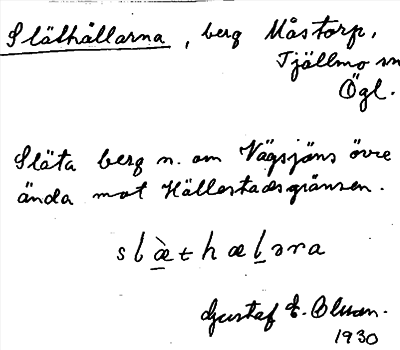 Släthällarna, berg Måstorp,
Tjällmo sn
Ögl.
Släta berg n. om Vägsjöns övre
ända mot Hällestadsgränsen.
slæ̀thælǝra
Gustaf E. Olsson.
1930